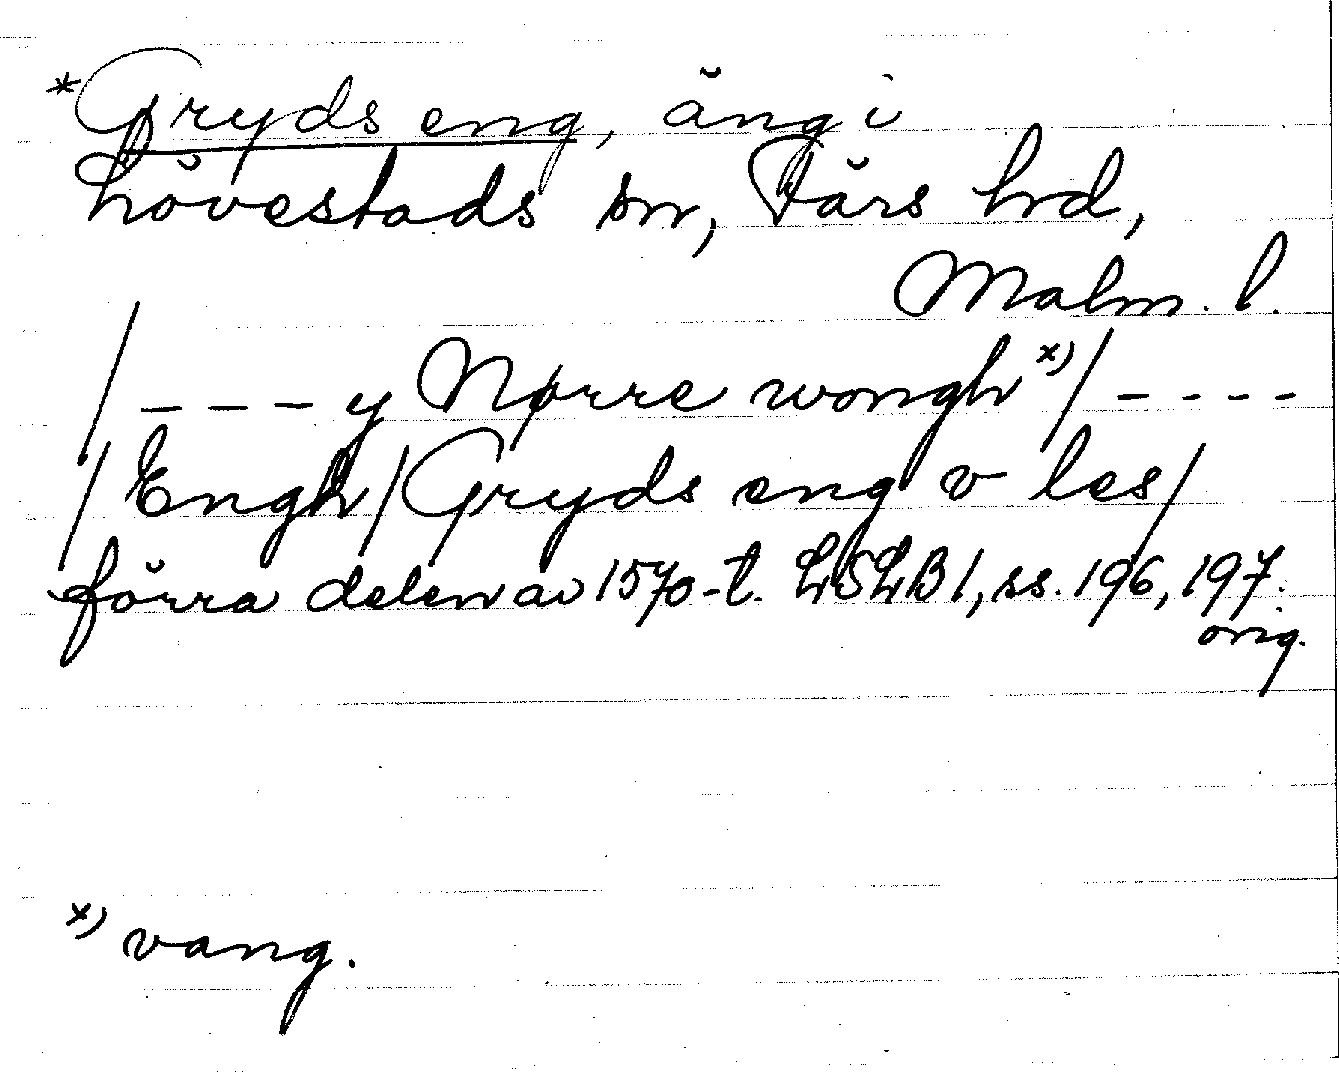 *Gryds eng, äng i
Lövestads sn, Färs hd,
Malm. l.
/ – – – y Nørre wongh x) / – – – –
/ Engh / Gryds eng v les /
förra delen av 1570-t. LSLB 1, ss. 196, 197.
orig.
x) vang.